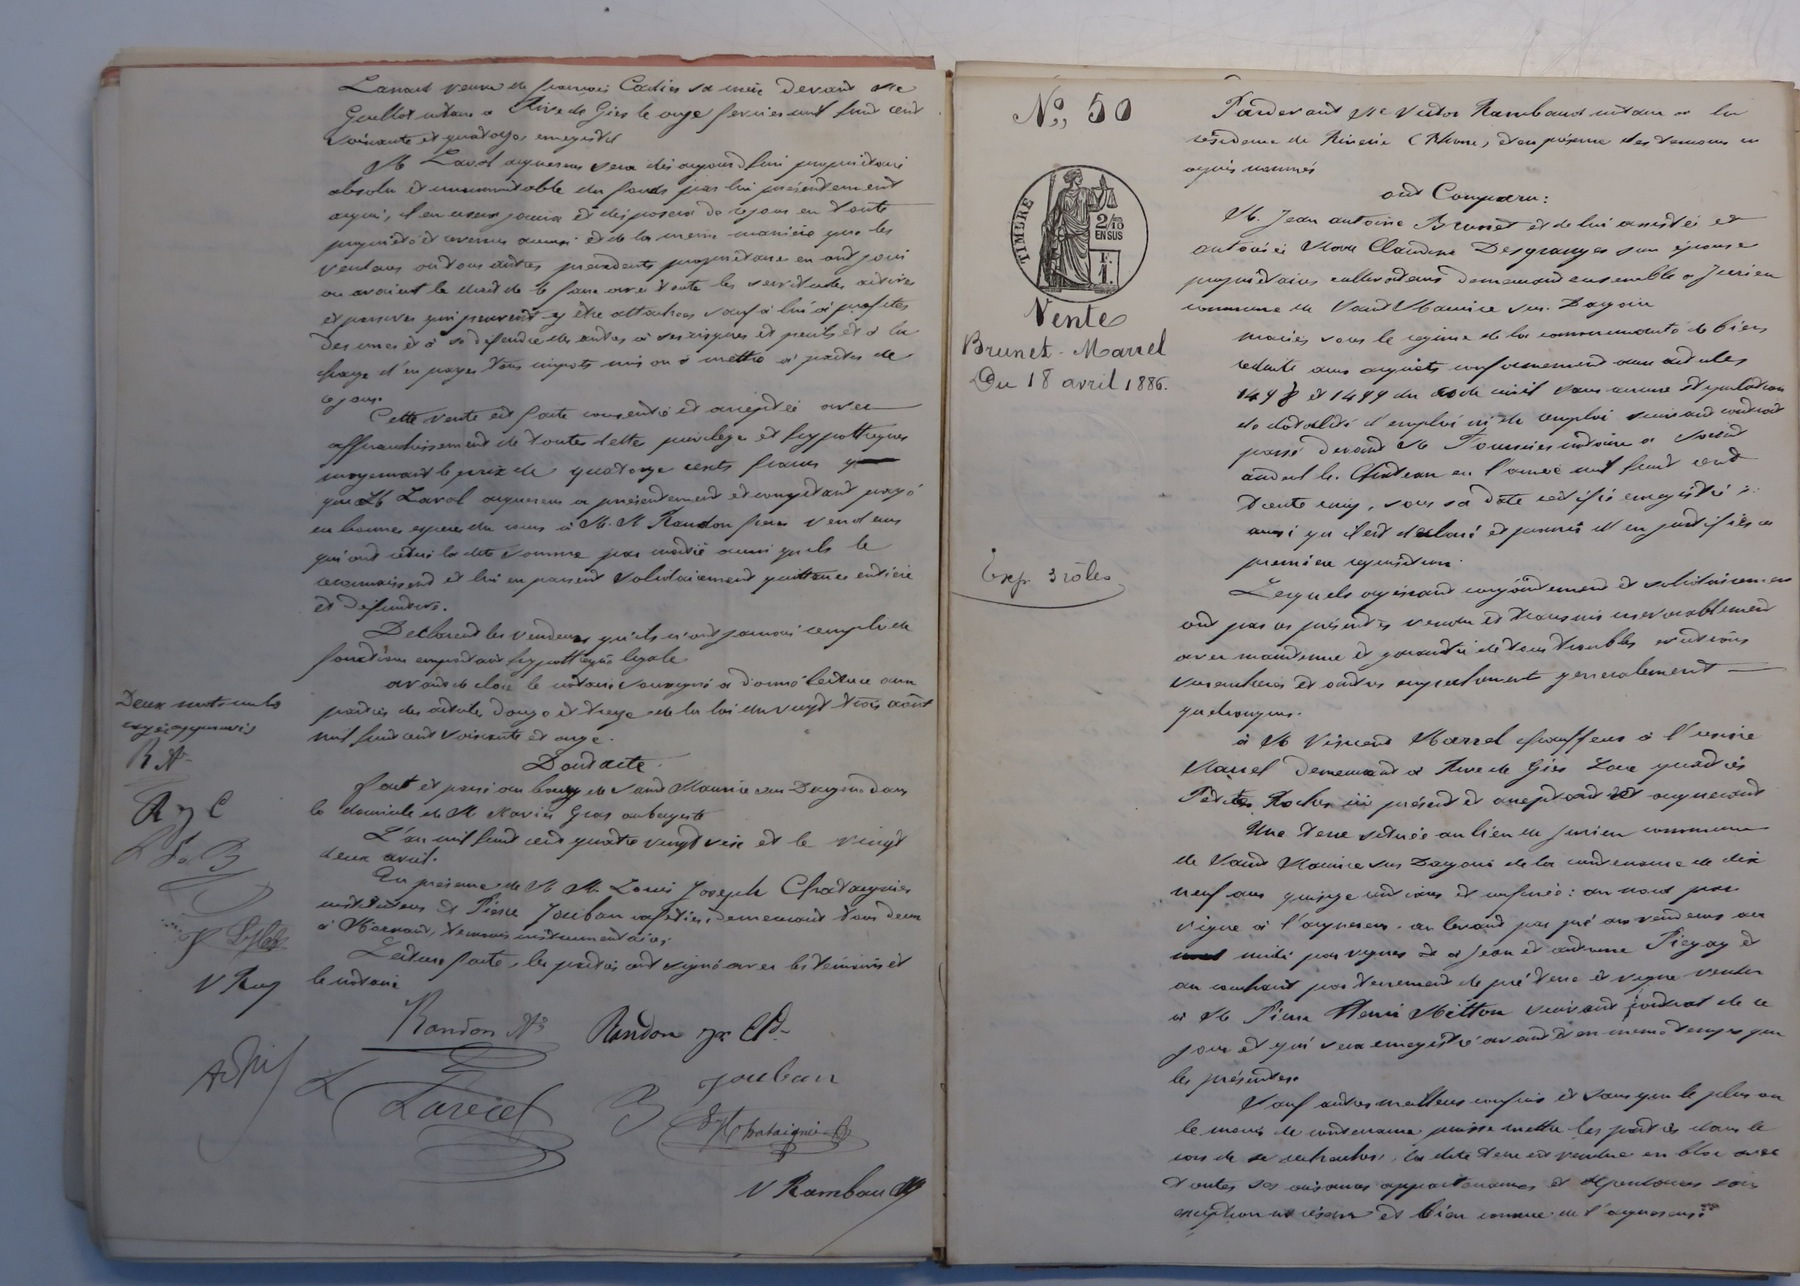 Lanard veuve de françois Cadier sa mère devant Me
Guillot notaire a Rive de Gier le onze fevrier mil huit cent
soixante et quatorze, enregistré
M. Laval acquereur sera dès aujourd'hui propriétaire
absolu et incommutable du fonds par lui présentement
acquis, il en usera jouira et disposera de ce jour en toute
propriété et revenus aussi et de la meme manière que les
vendeurs ou tous autres precedents propriétaires en ont joui
ou avaient le droit de le faire avec toute les servitudes actives
et passives qui peuvent y être attachées sauf à lui à profiter
des unes et à se défendre des autres à ses risques et perils et à la
charge d'en payer tous impots mis ou à mettre à partir de
ce jour.
Cette vente est faite consentie et acceptée avec
affranchissement de toutes dettes privilege et hypothèques
moyennant le prix de quatorze cents francs
que M Laval acquereur a présentement et comptant payé
en bonnes espèces du cours à M. M. Randon freres vendeurs
qui ont retiré la dite somme par moitié ainsi qu'ils le
reconnaissent et lui en passent solidairement quittance entière
et définitive.
Declarent les vendeurs qu'ils n'ont jamais rempli de
fonctions emportant hypothèque légale
avant de clore le notaire soussigné a donné lecture aux
parties des articles douze et treize de la loi du vingt trois août
mil huit cent soixante et onze.
Dont acte.
fait et passé au bourg de Saint Maurice sur Dargoire dans
le domicile de M Xavier Gras aubergiste
L'an mil huit cent quatre vingt six et le vingt
deux avril.
En présence de M. M. Louis Joseph Chataignier
instituteur et Pierre Jouban cafetier, demeurant tous deux
à Mornant, temoins instrumentaires
Lecture faite, les parties ont signé avec les témoins et
le notaire
Deux mots nuls
rayés approuvés
R Ane
R J C
V Ray
Randon Ane
Randon Jn Cde
Laval
Jouban
Chataignier
V Rambaud
No 50
TIMBRE
2/10
EN SUS
F.
1.
Vente
Brunet - Marrel
Du 18 avril 1886.
Exp. 3 rôles
Pardevant Me Victor Rambaud notaire a la
résidence de Riverie (Rhone) et en présence des temoins ci
après nommés
ont Comparu:
M. Jean antoine Brunet et de lui assistée et
autorisée Marie Claudine Desgranges son épouse
propriétaires cultivateurs demeurant ensemble a Jurieu
commune de Saint Maurice sur Dargoire
mariés sous le regime de la communauté de biens
reduite aux acquets conformement aux articles
1498 et 1499 du code civil sans aucune stipulation
de dotalité d'emploi ni de remploi suivant contrat
passé devant Me Fournier notaire a Soucieu
andert le Château en l'année mil huit cent
trente cinq, sous sa date certifié enregistré
ainsi qu'il est declaré et promis d'en justifier a
première requisition.
Lesquels agissant conjointement et solidairement
ont par ces présentes vendu et transmis irrevocablement
avec maintenue et garantie de tous troubles evictions
surencheres et autres empechements généralement
quelconques.
à M Vincent Marrel chauffeur à l'usine
Marrel demeurant a Rive de Gier Lieu quartier
Petites Roches ici présent et acceptant et acquereur
Une terre située au lieu de Jurieu commune
de Saint Maurice sur Dargoire de la contenance de dix
neuf ares quinze centiares et confinée: au nord par
vigne à l'acquereur. au levant par pré aux vendeurs au
midi par vignes à Jean et antoine Piegay et
au couchant par tenement de pré terre et vigne vendu
à M Pierre Henri Mitton suivant contrat de ce
jour et qui sera enregistré avant et en meme temps que
les présentes.
Sauf autres meilleurs confins et sans que le plus ou
le moins de contenance puisse mettre les parties dans le
cas de se rechercher, la dite terre est vendue en bloc avec
toutes ses aisances appartenances et dépendances sans
exception ni réserve et bien connue de l'acquereur.